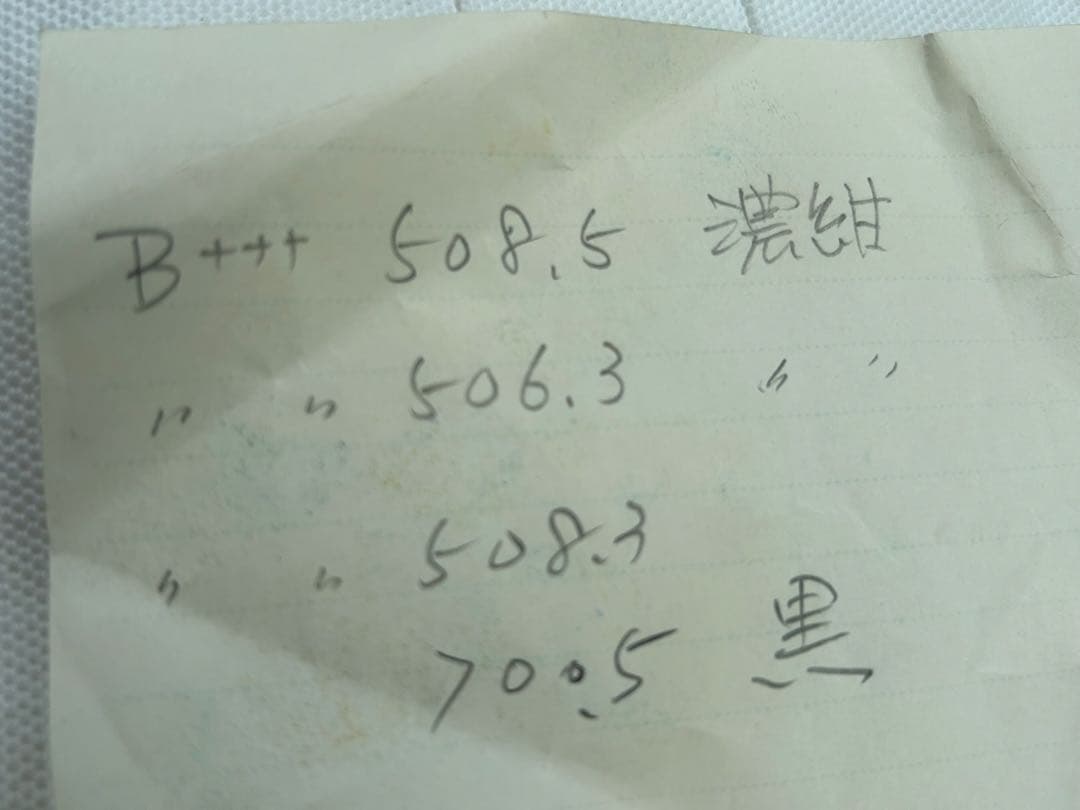 B+++ 508.5 濃紺
〃 〃 506.3 〃 〃
〃 〃 508.3
700.5 黒